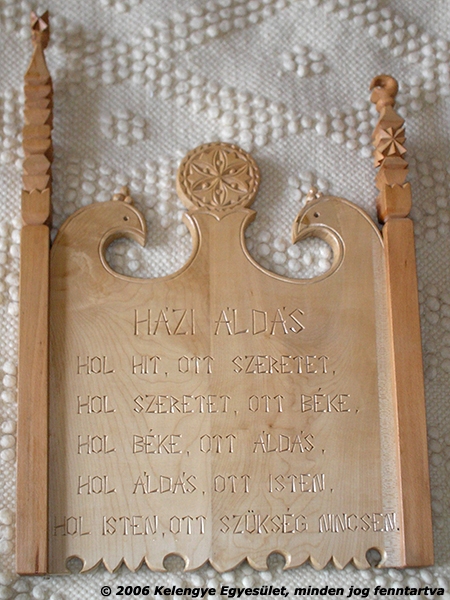 HÁZI ÁLDÁS
HOL HIT, OTT SZERETET,
HOL SZERETET, OTT BÉKE,
HOL BÉKE, OTT ÁLDÁS,
HOL ÁLDÁS, OTT ISTEN,
HOL ISTEN, OTT SZÜKSÉG NINCSEN.
© 2006 Kelengye Egyesület, minden jog fenntartva